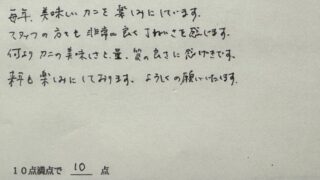 毎年、美味しいカニを楽しみにしています。
スタッフの方々も非常に良くていねいさを感じます。
何よりカニの美味しさと、量、質の良さに感げきです。
来年も楽しみにしております。よろしくお願いいたします。
10点満点で 10 点